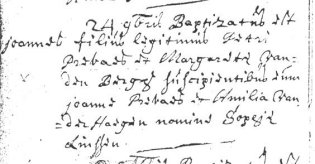 24 9bris Baptizatus est
joannes filius legitimus Petri
Prevaes et Margareta Van-
den Bergh suscipientibus eum
joanne Prevaes et Emilia Van-
der Haegen nomine
Linssen